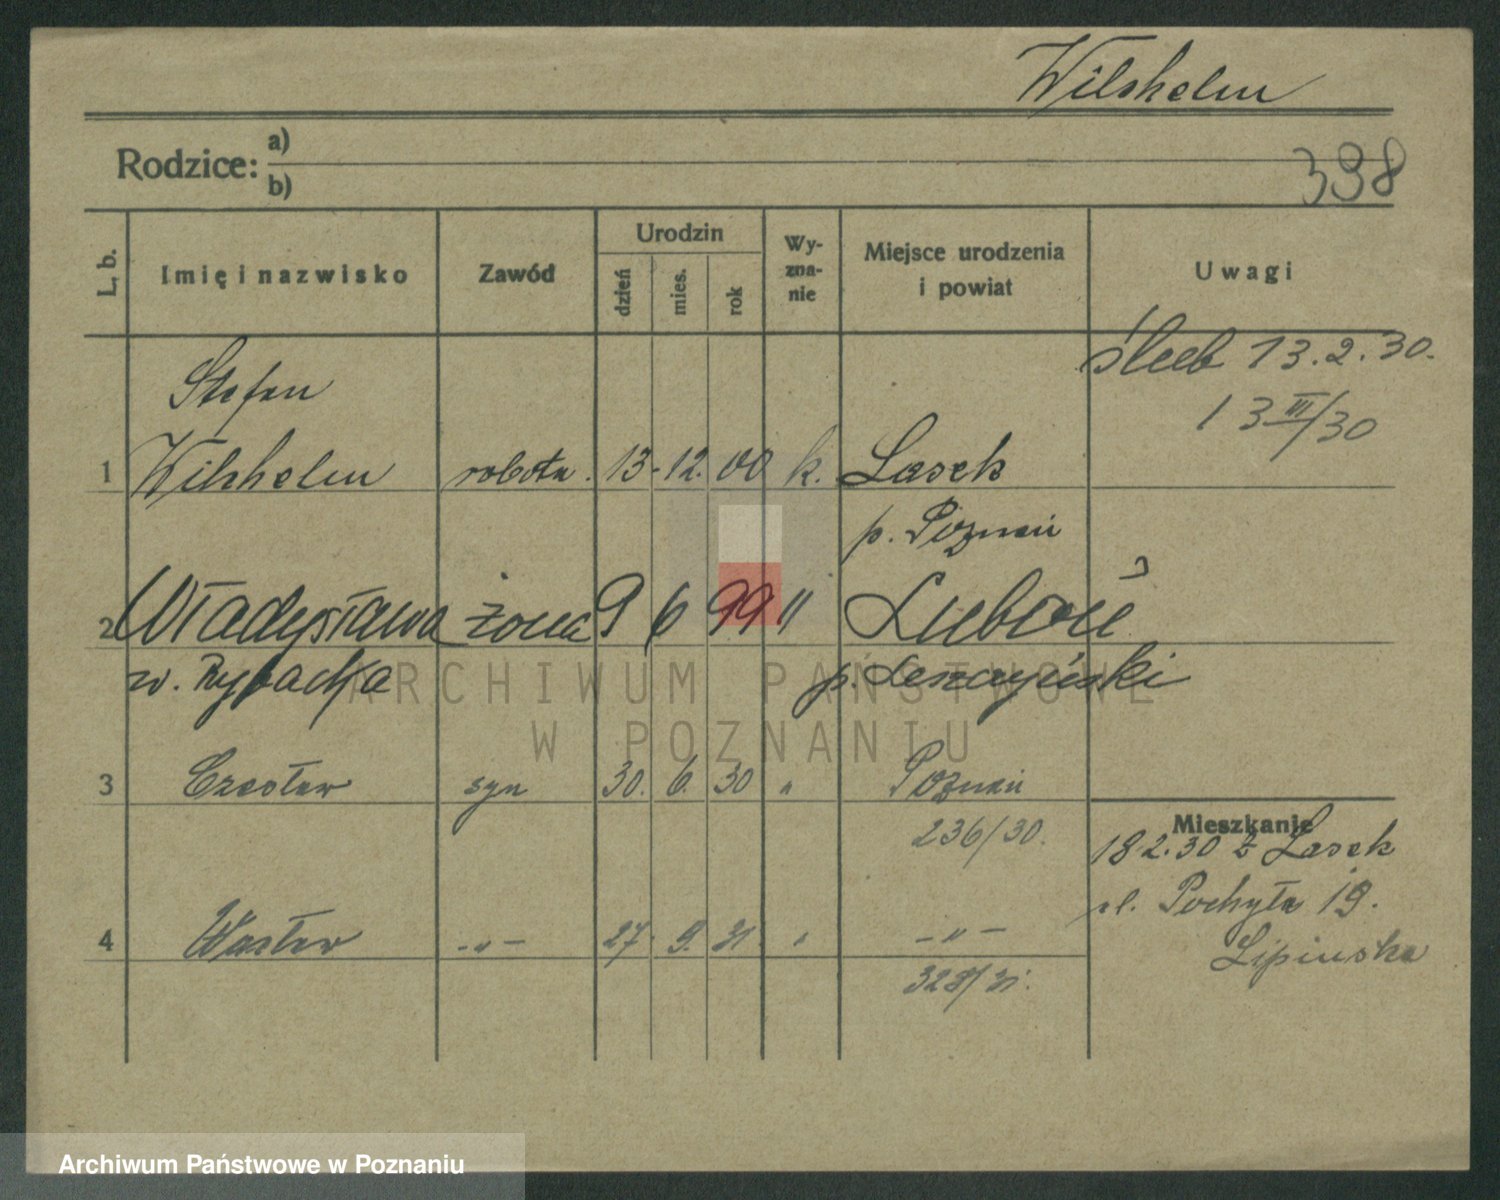 Wilshelm
Rodzice: a)
b)
398
L. b. Imię i nazwisko Zawód Urodzin dzień mies. rok Wy-zna-nie Miejsce urodzenia i powiat Uwagi
ślub 13.2.30.
13 III/30
Stefan
1 Wilshelm robotn. 13. 12. 00 k. Lasek
p. Poznań
2 Władysława żona 9 6 99 " Luboń
w. Rybacka p. Leszczyński
3 Czesław syn 30. 6. 30 " Poznań
236/30.
Mieszkanie
18.2.30 z Lasek
ul. Pochyła 19.
Lipinska
4 Wacław -"- 27. 9. 31 " -"-
328/31.
ARCHIWUM PAŃSTWOWE
W POZNANIU
Archiwum Państwowe w Poznaniu